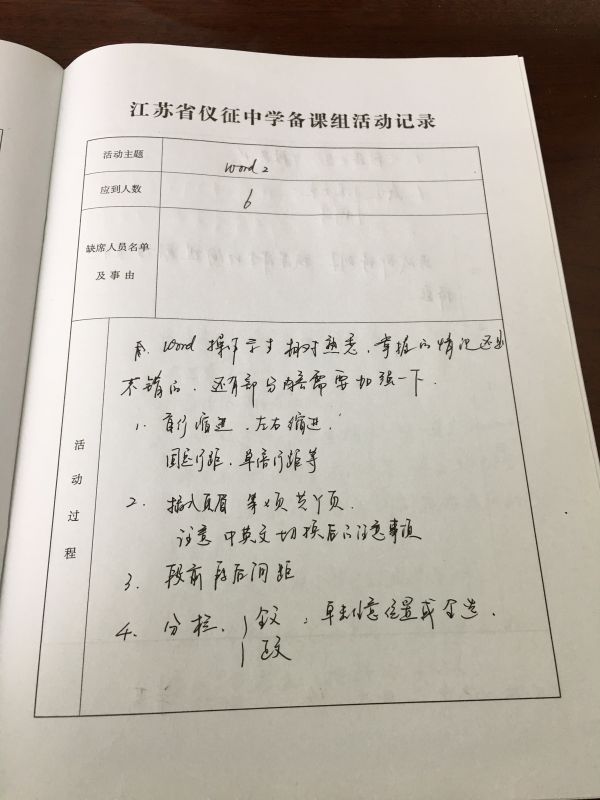 江苏省仪征中学备课组活动记录
活动主题
word 2
应到人数
6
缺席人员名单
及事由
活动过程
word 操作学生相对熟悉，掌握的情况还是
不错的，还有部分内容需要加强一下.
1. 首行缩进，左右缩进，
固定行距，单倍行距等
2. 插入页眉 第X页 共Y页.
注意 中英文切换后的注意事项
3. 段前段后间距
4. 分栏. 全文，单击任意位置或全选.
正文